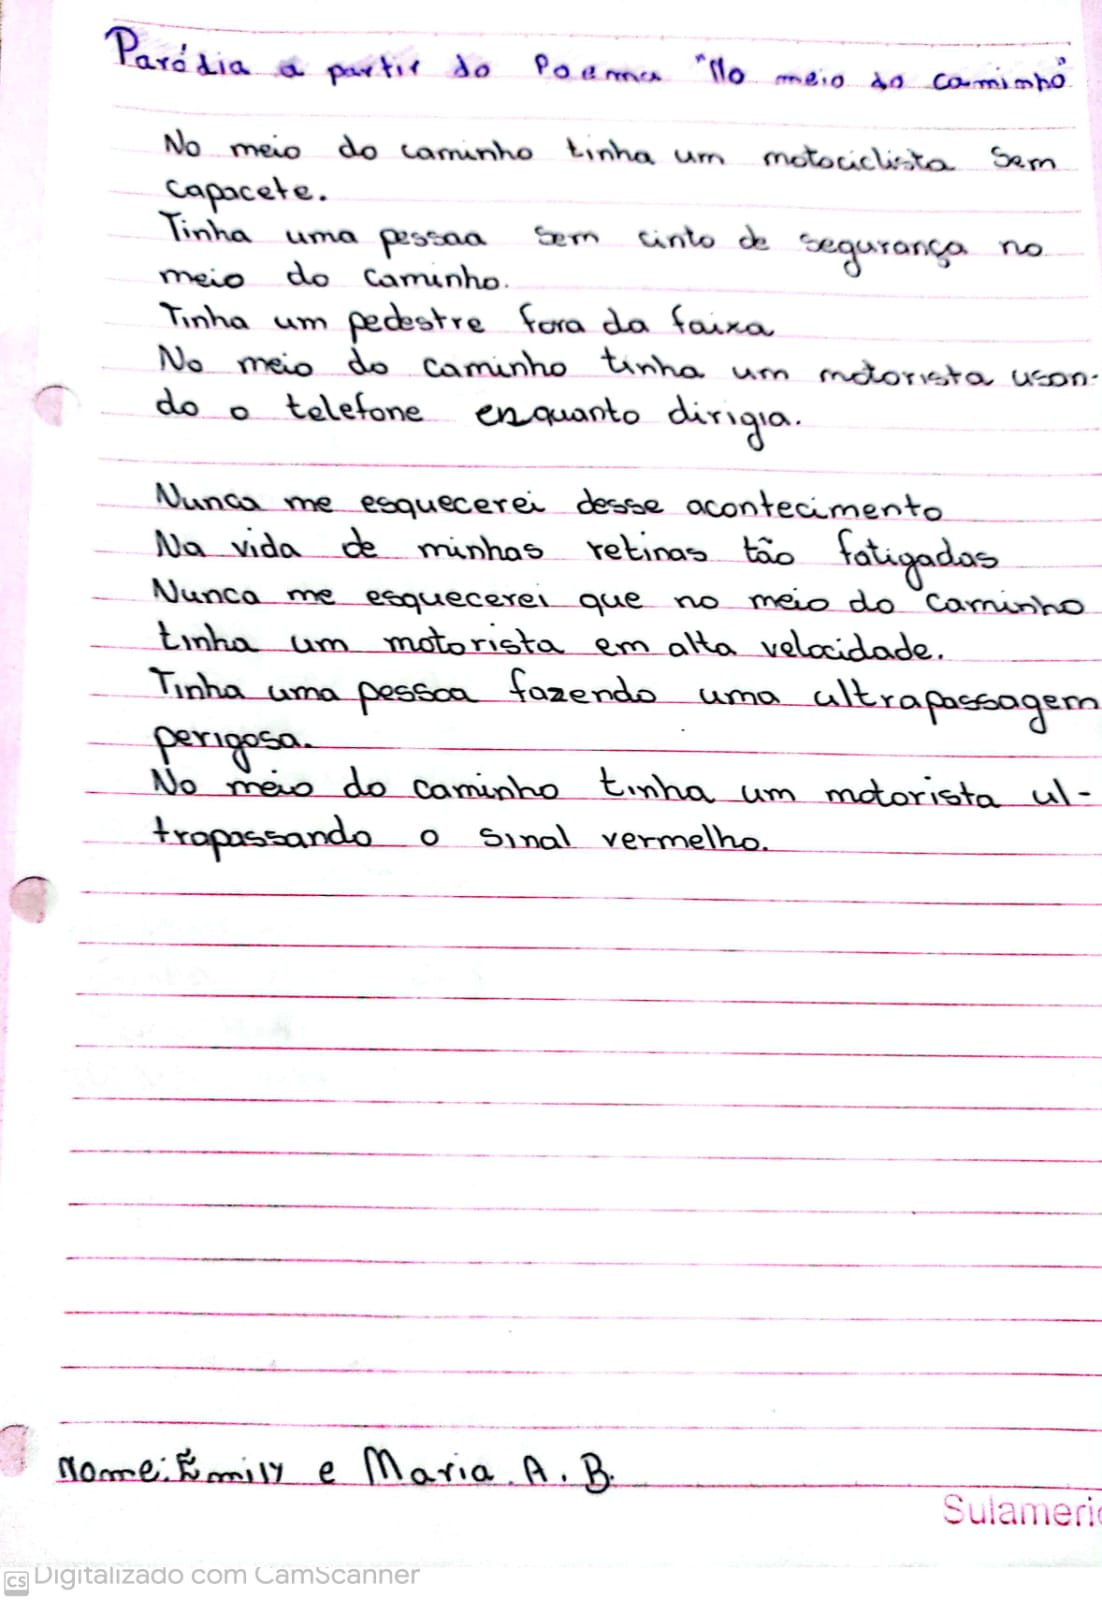 Paródia a partir do Poema "No meio do caminho"
No meio do caminho tinha um motociclista sem
capacete.
Tinha uma pessoa sem cinto de segurança no
meio do caminho.
Tinha um pedestre fora da faixa
No meio do caminho tinha um motorista usan-
do o telefone enquanto dirigia.
Nunca me esquecerei desse acontecimento
Na vida de minhas retinas tão fatigadas
Nunca me esquecerei que no meio do caminho
tinha um motorista em alta velocidade.
Tinha uma pessoa fazendo uma ultrapassagem
perigosa.
No meio do caminho tinha um motorista ul-
trapassando o sinal vermelho.
Nome: Emily e Maria A. B.
Sulameric
CS Digitalizado com CamScanner